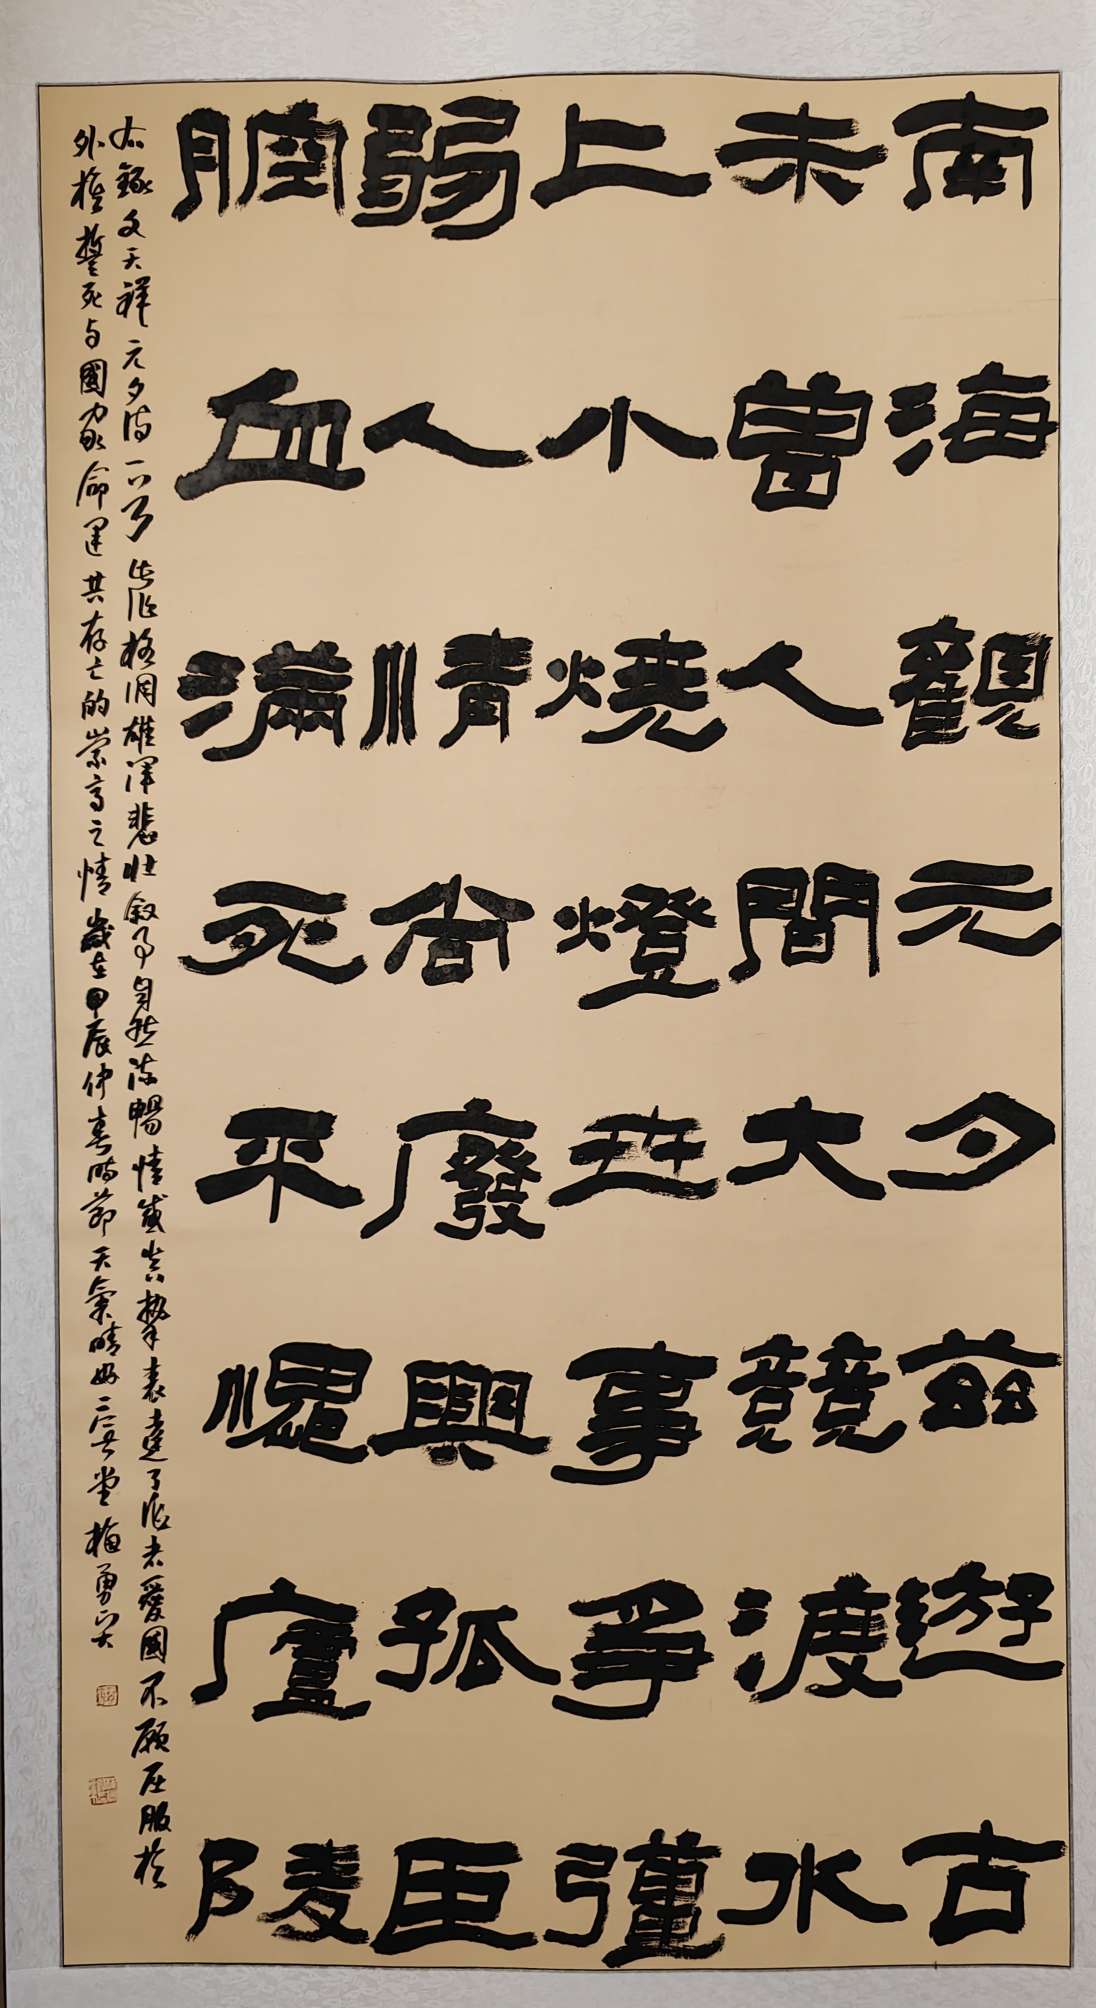 南海觀元夕茲遊古
未曾人間大競渡水
上小燒燈世事爭彊
弱人情尚廢興孤臣
腔血滿死不愧廬陵
右錄文天祥元夕詩一首此作格調雄渾悲壯叙事自然流暢情感真摯表達了作者愛國不願屈服於
外族誓死与國家命運共存亡的崇高之情歲在甲辰仲春時節天氣晴好堂梅勇